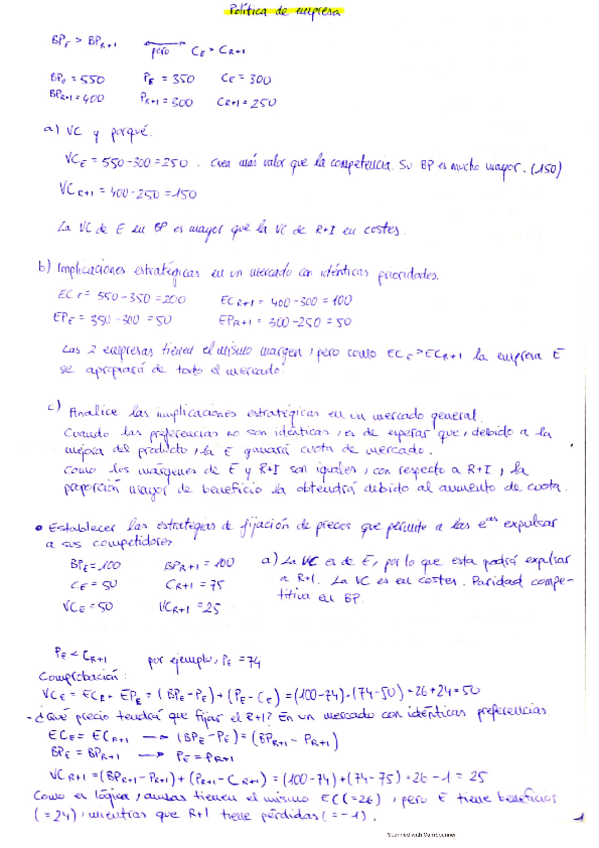 Política de empresa
BP_E > BP_R+1 pero C_E > C_R+1
BP_E = 550 P_E = 350 C_E = 300
BP_R+1 = 400 P_R+1 = 300 C_R+1 = 250
a) VC y porqué.
VC_E = 550-300 = 250. Crea más valor que la competencia. Su BP es mucho mayor. (150)
VC_R+1 = 400-250 = 150
La VC de E en BP es mayor que la VC de R+I en costes.
b) Implicaciones estratégicas en un mercado con idénticas prioridades.
EC_E = 550-350 = 200 EC_R+1 = 400-300 = 100
EP_E = 350-300 = 50 EP_R+1 = 300-250 = 50
Las 2 empresas tienen el mismo margen, pero como EC_E > EC_R+1 la empresa E
se apropiará de todo el mercado.
c) Analice las implicaciones estratégicas en un mercado general.
Cuando las preferencias no son idénticas, es de esperar que, debido a la
mejora del producto, la E ganará cuota de mercado.
Como los márgenes de E y R+I son iguales, con respecto a R+I, la
proporción mayor de beneficio la obtendrá debido al aumento de cuota.
• Establecer las estrategias de fijación de precios que permite a las eᵃˢ expulsar
a sus competidores
BP_E = 100 BP_R+1 = 100 a) La VC es de E, por lo que esta podrá expulsar
C_E = 50 C_R+1 = 75 a R+1. La VC es en costes. Paridad compe-
VC_E = 50 VC_R+1 = 25 titiva en BP.
P_E < C_R+1 por ejemplo, P_E = 74
Comprobación:
VC_E = EC_E + EP_E = (BP_E - P_E) + (P_E - C_E) = (100-74) + (74-50) = 26+24 = 50
- ¿Qué precio tendrá que fijar el R+1? En un mercado con idénticas preferencias
EC_E = EC_R+1 → (BP_E - P_E) = (BP_R+1 - P_R+1)
BP_E = BP_R+1 → P_E = P_R+1
VC_R+1 = (BP_R+1 - P_R+1) + (P_R+1 - C_R+1) = (100-74) + (74-75) = 26-1 = 25
Como es lógico, ambas tienen el mismo EC (=26), pero E tiene beneficios
(=24), mientras que R+1 tiene pérdidas (=-1).
1
Scanned with CamScanner